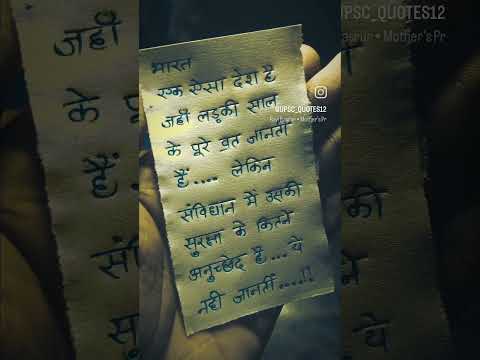 UPSC_QUOTES12
Mother's Pr
@UPSC_QUOTES12
Mother'sPr
भारत
एक ऐसा देश है
जहाँ लड़की साल
के पूरे व्रत जानती
हैं.... लेकिन
संविधान में उसकी
सुरक्षा के कितने
अनुच्छेद है... ये
नही जानतीं....!!
जहाँ
के
हैं
संवि
सुर
की
ये